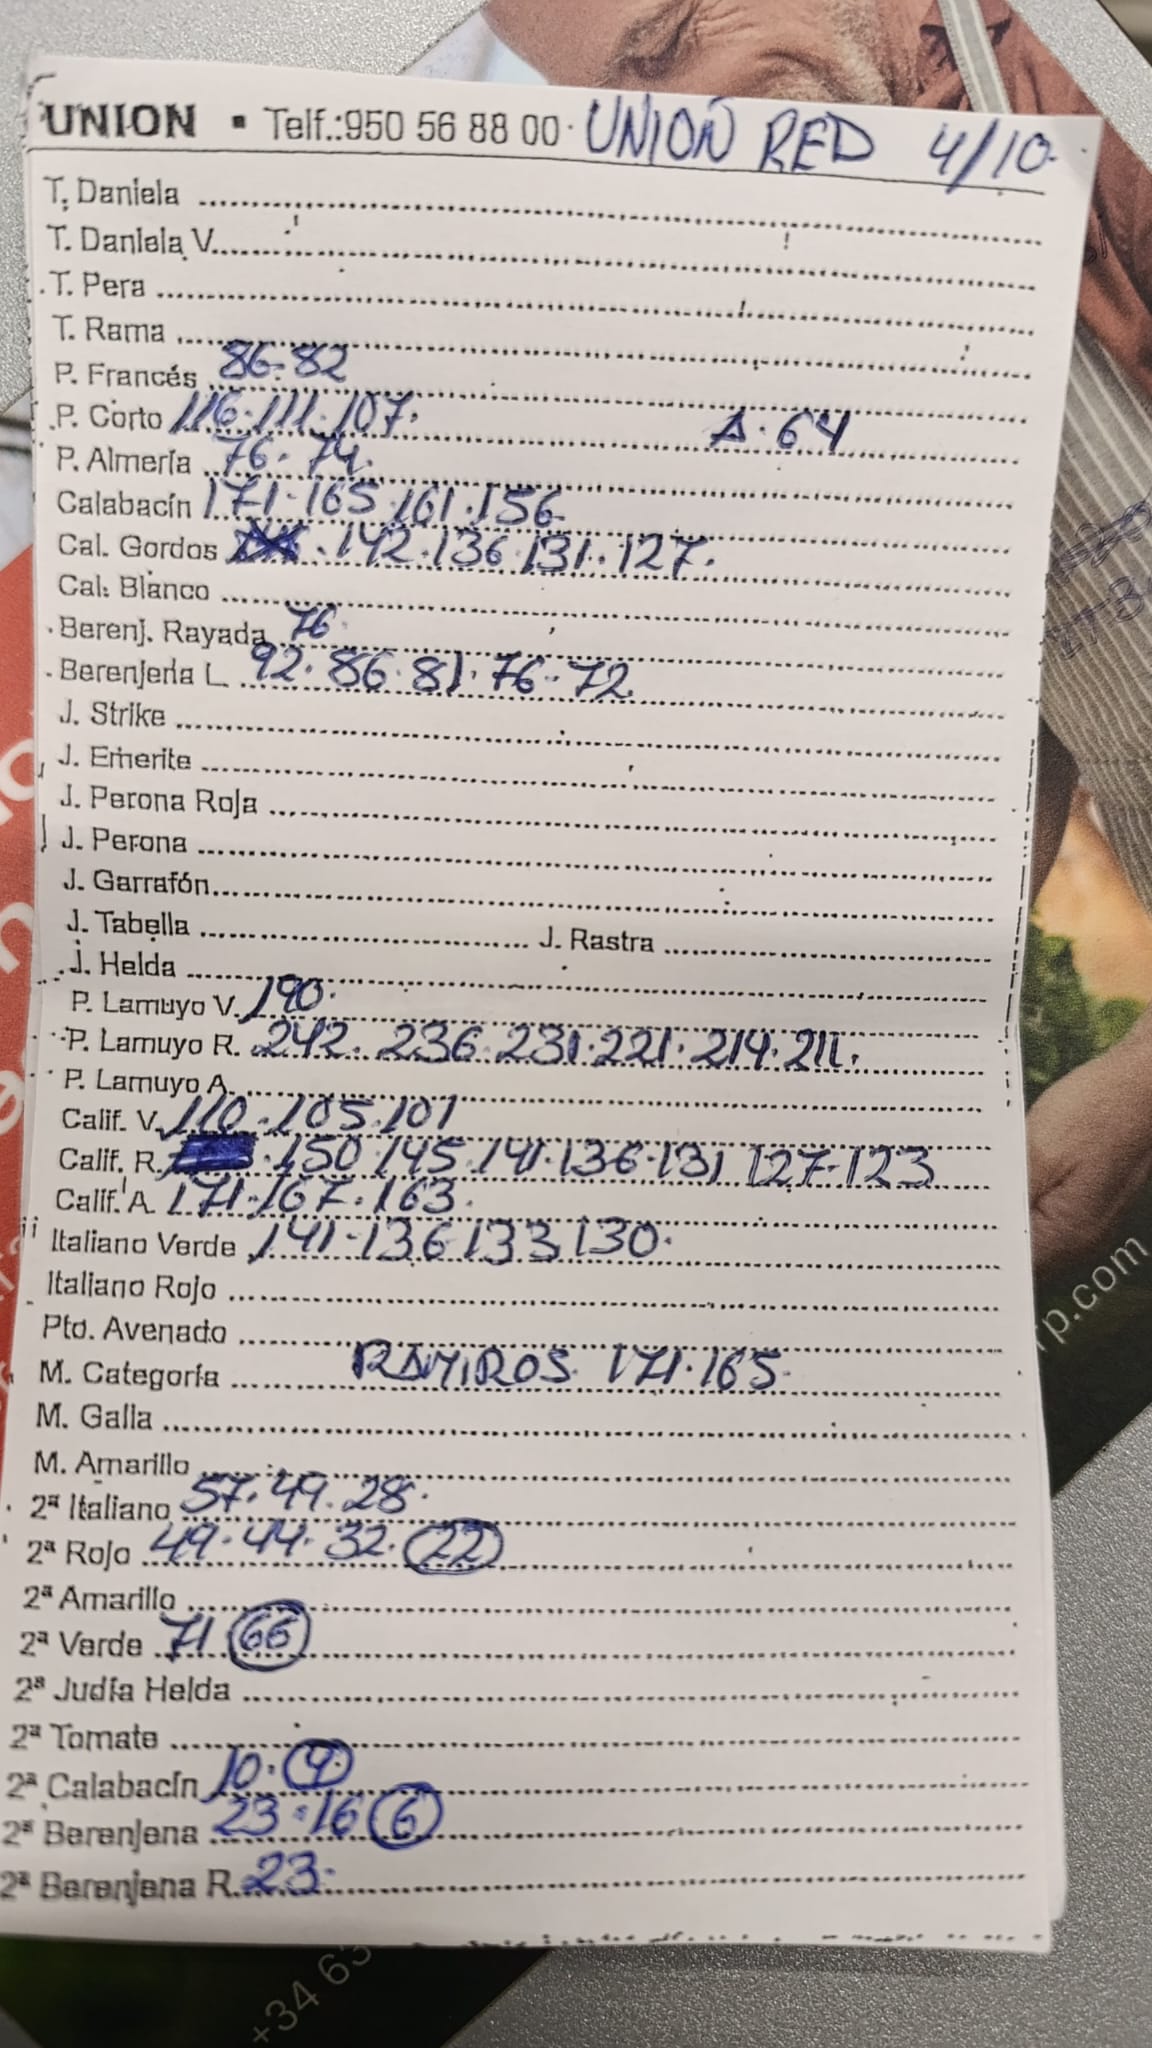 UNION • Telf.:950 56 88 00 UNION RED 4/10
T. Daniela
T. Daniela V.
T. Pera
T. Rama
P. Francés 86. 82
P. Corto 116. 111. 107. A. 64
P. Almería 76. 74.
Calabacín 171. 165. 161. 156
Cal. Gordos 142. 136. 131. 127.
Cal. Blanco
Berenj. Rayada 76.
Berenjena L. 92. 86. 81. 76. 72.
J. Strike
J. Emerite
J. Perona Roja
J. Perona
J. Garrafón
J. Tabella J. Rastra
J. Helda
P. Lamuyo V. 190.
P. Lamuyo R. 242. 236. 231. 221. 214. 211.
P. Lamuyo A.
Calif. V. 110. 105. 101
Calif. R. 150. 145. 141. 136. 131 127. 123
Calif. A. 171. 167. 163.
Italiano Verde 141. 136. 133 130.
Italiano Rojo
Pto. Avenado
M. Categoría RAMIROS. 171. 165.
M. Galla
M. Amarillo
2ª Italiano 57. 49. 28.
2ª Rojo 49. 44. 32. 22
2ª Amarillo
2ª Verde 71. 66
2ª Judía Helda
2ª Tomate
2ª Calabacín 10.
2ª Berenjena 23. 16 6
2ª Berenjena R. 23.
rp.com
+34 63